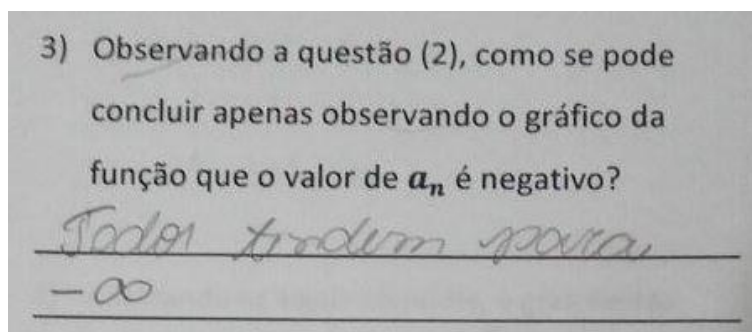 3) Observando a questão (2), como se pode
concluir apenas observando o gráfico da
função que o valor de aₙ é negativo?
Todos tendem para
-∞